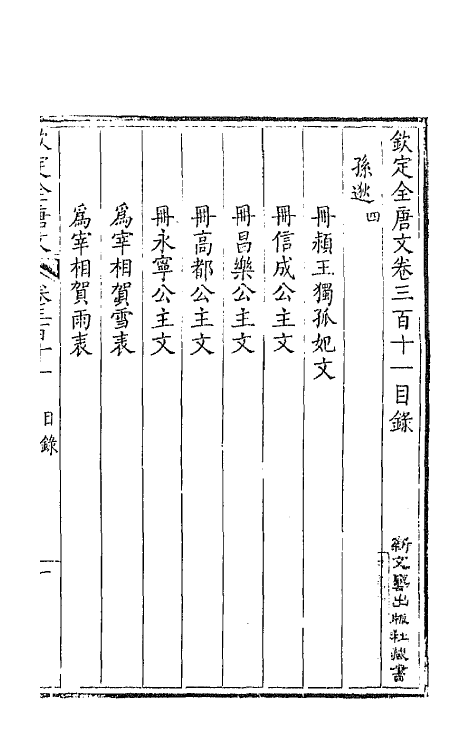 欽定全唐文卷三百十一目錄
新文藝出版社藏書
孫逖四
冊潁王獨孤妃文
冊信成公主文
冊昌樂公主文
冊高都公主文
冊永寧公主文
為宰相賀雪表
為宰相賀雨表
欽定全唐文 卷三百十一 目錄 一